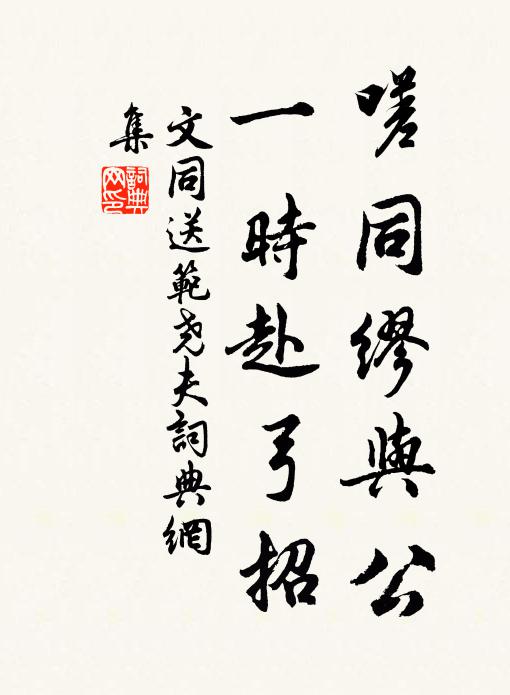 嗟同繆與公
一時赴弓招
文同送範堯夫詞典網
集
詞典
网印